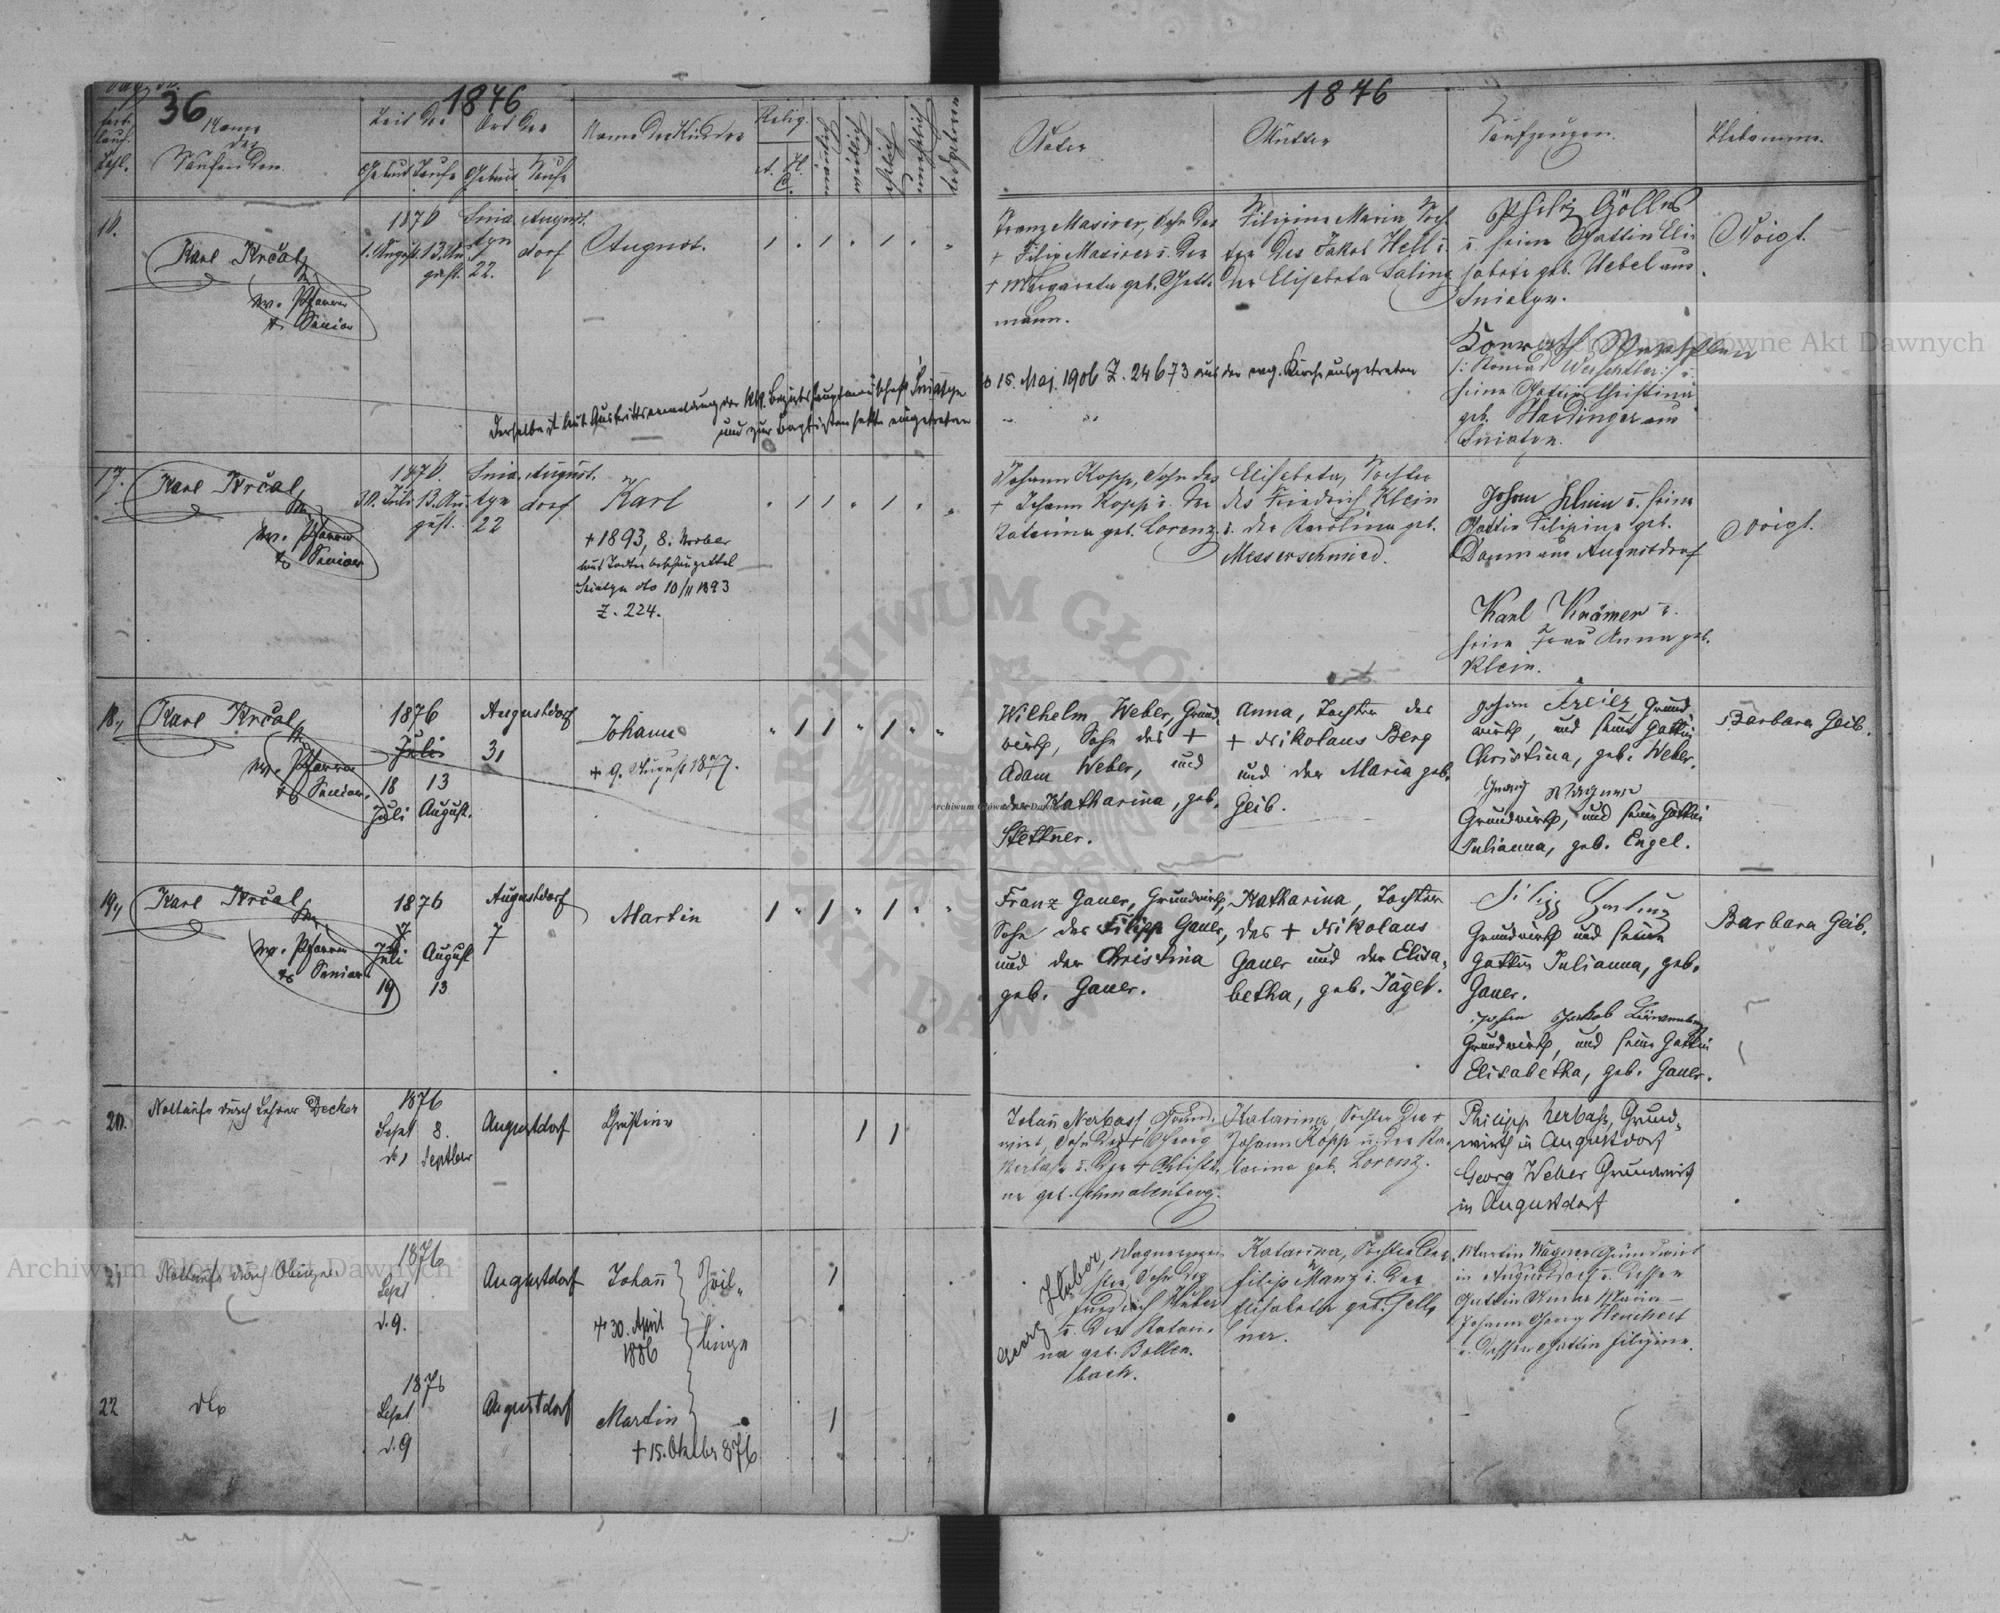 36
1876
1876
Name
der
Taufenden.
Zeit der
Ort der
Geburt Taufe
Geburt Taufe
Name des Kindes
Relig.
A. H. C.
männlich
weiblich
ehelich
unehelich
todtgeboren
Vater
Mutter
Taufzeugen.
Hebamme.
16.
Karl Krčal
Pfarrer
Senior
1876
1. August 13. Au
gust.
Snia
tyn
22.
August
dorf
August.
Franz Masirer, Sohn des
+ Filip Masirer u. der
+ Margareta geb. Gett-
mann.
Filipina Maria Toch
ter des Jakob Hell u.
der Elisabeta Saling
Philip Göllner
u. seine Gattin Eli
sabeta geb. Uebel aus
Sniatyn.
Konrath Werschler
/: Konrad Werschler :/ u.
seine Gattin Christina
geb. Hardinger aus
Sniatyn.
Voigt.
Derselbe ist laut Austrittsanmeldung der k.k. Bezirkshauptmannschaft Sniatyn
do 15. Maj. 1906 Z. 24673 aus der evg. Kirche ausgetreten
und zur Baptistensekte eingetreten
17.
Karl Krčal
Pfarrer
Senior
1876.
30. Juli 13. Au
gust.
Snia
tyn
22
August.
dorf
Karl
+ 1893, 8. November
laut Todtenbeschauzettel
Sniatyn do 10/11 1893
Z. 224.
Johann Kopp, Sohn des
+ Johann Kopp u. der
Katarina geb. Lorenz
Elisabeta, Tochter
des Friedrich Klein
u. der Karolina geb.
Messerschmied.
Johan Klein u. seine
Gattin Filipina geb.
Damm aus Augustdorf
Karl Krämer u.
seine Frau Anna geb.
Klein.
Voigt.
18.
Karl Krčal
Pfarrer
Senior.
1876
Juli
18 13
Juli August.
Augustdorf
31
Johann
+ 9. August 1877.
Wilhelm Weber, Grund
wirth, Sohn des +
Adam Weber, und
der Katharina, geb.
Stettner.
Anna, Tochter des
+ Nikolaus Berg
und der Maria geb.
Geib.
Johan Freier Grund
wirth, und seine Gattin
Christina, geb. Weber.
Georg Wagner
Grundwirth, und seine Gattin
Julianna, geb. Engel.
Barbara Geib.
19.
Karl Krčal
Pfarrer
Senior
1876
7
Juli August
19 13
Augustdorf
7
Martin
Franz Gauer, Grundwirth,
Sohn des Filipp Gauer,
und der Christina
geb. Gauer.
Katharina, Tochter
des + Nikolaus
Gauer und der Elisa-
betha, geb. Jäger.
Grundwirth und seine
Gattin Julianna, geb.
Gauer.
Johan Jakob
Grundwirth, und seine Gattin
Elisabetha, geb. Gauer.
Barbara Geib.
20.
Nottaufe durch Lehrer Decker
1876
Sept 8.
d. 1 Septber
Augustdorf
Christine
Johan Nerbass, Grund-
wirt, Sohn des + Georg
Nerbass u. der + Christi-
na geb. Schmalenberg.
Katarina, Tochter des +
Johann Kopp u. der Ka-
tarina geb. Lorenz.
Philipp Nerbass, Grund-
wirth in Augustdorf
Georg Weber Grundwirth
in Augustdorf
21
Nottaufe durch Obigen
1876
Sept
d. 9.
Augustdorf
Johann
+ 30. April
1886
Zwil-
linge
Georg Huber,
Wagnermei
ster, Sohn des
Friedrich Huber
u. der Katari-
na geb. Bollen
bach.
Katarina, Tochter des
Filip Manz u. der
Elisabeta geb. Gell
ner.
Martin Wagner Grundwirt
in Augustdorf u. dessen
Gattin Anna Maria –
Johann Georg Henchert
u. dessen Gattin Filipine.
22
dto
1876
Sept
d. 9
Augustdorf
Martin
+ 15. Oktober 876
Archiwum Główne Akt Dawnych
Archiwum Główne Akt Dawnych
Archiwum Główne Akt Dawnych
ARCHIWUM GŁÓWNE AKT DAWNYCH